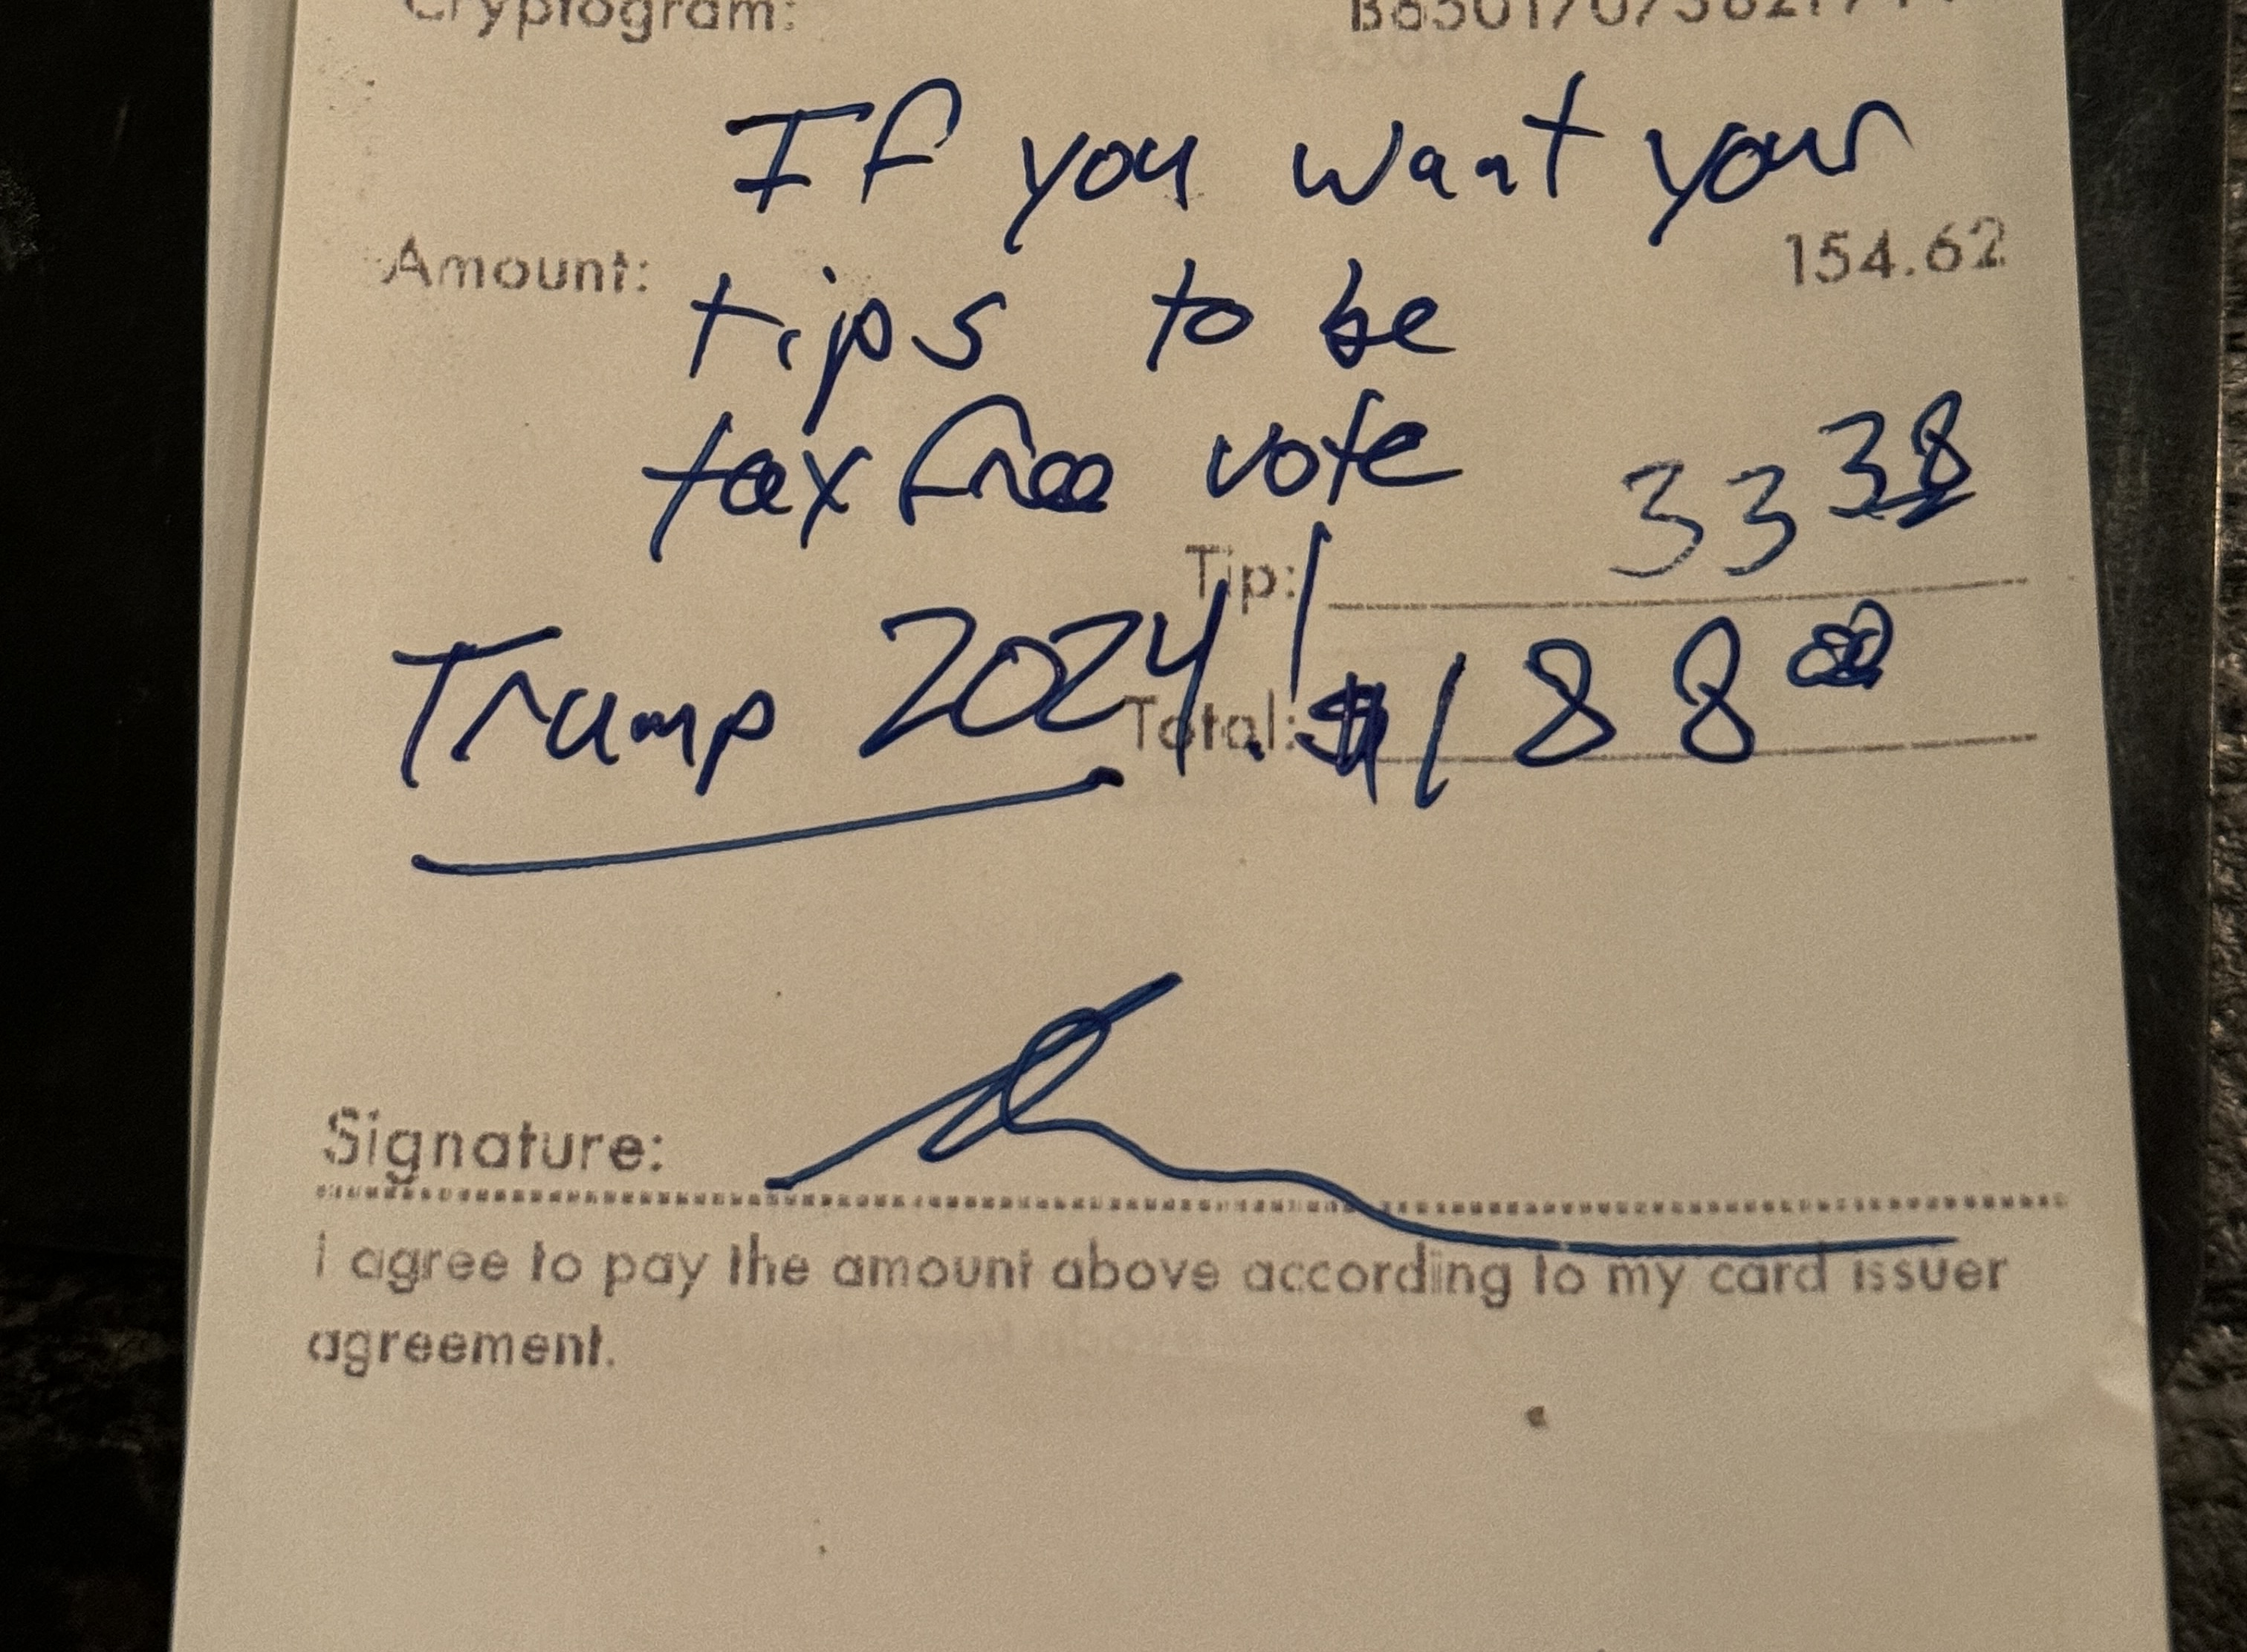 Cryptogram:
If you want your
Amount: 154.62
tips to be
tax free vote
Tip: 33 38
Trump 2024!
Total: $188 00
Signature:
I agree to pay the amount above according to my card issuer
agreement.